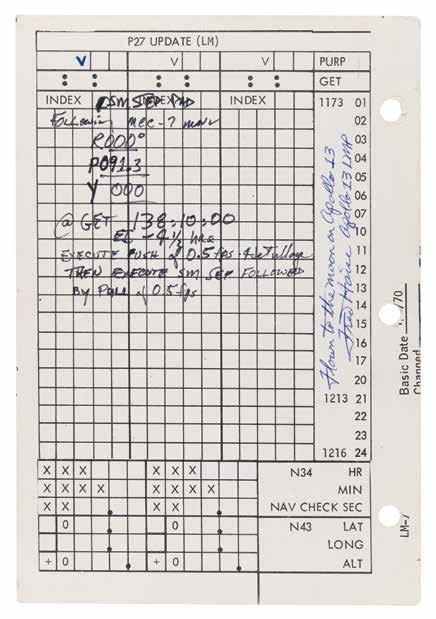 P27 UPDATE (LM)
V V V PURP
: : : : : : GET
INDEX INDEX INDEX 1173 01
SM SEP PAD
02
FOLLOWING MCC-7 MNVR
03
R 000°
04
P 091.3
05
Y 000
06
07
@ GET 138:10:00
10
EI - 4 1/2 hrs
11
EXECUTE PUSH of 0.5 fps
12
THEN EXECUTE SM SEP FOLLOWED
13
BY PULL of 0.5 fps
14
15
16
17
20
1213 21
22
23
1216 24
Flown to the moon on Apollo 13
Fred Haise Apollo 13 LMP
X X X X X X N34 HR
X X X X X X X X MIN
X X X X NAV CHECK SEC
0 0 N43 LAT
LONG
+ 0 + 0 ALT
Basic Date /70
Changed
LM-7